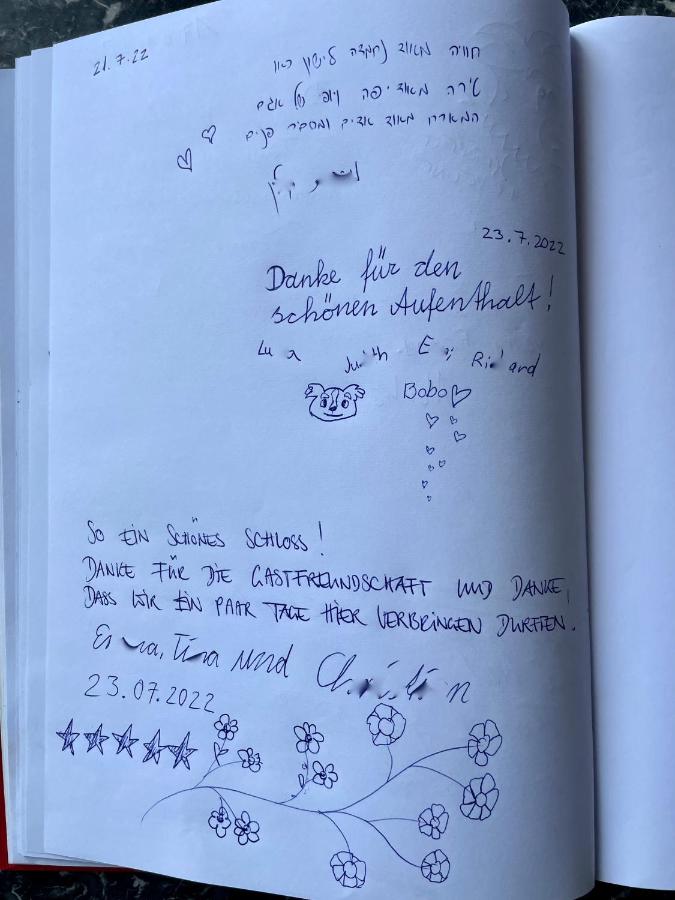 21.7.22
חוויה מאוד נחמדה לישון כאן
טירה מאוד יפה ונוף של אגם
המארח מאוד אדיב ומסביר פנים
23.7.2022
Danke für den
schönen Aufenthalt!
Bobo
SO EIN SCHÖNES SCHLOSS!
DANKE FÜR DIE GASTFREUNDSCHAFT UND DANKE,
DASS WIR EIN PAAR TAGE HIER VERBRINGEN DURFTEN.
Tina und
23.07.2022